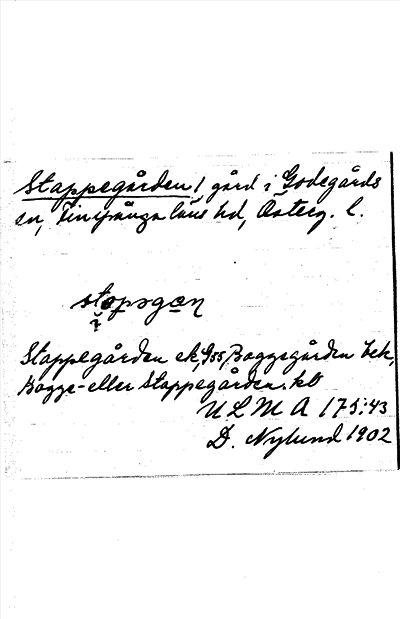 Stappegården, gård i Godegårds
sn, Finspånga läns hd, Österg. l.
stapəgən
Stappegården ek, Gss, Baggegården bek,
Bagge- eller Stappegården. kb
ULMA 175:43
D. Nylund 1902